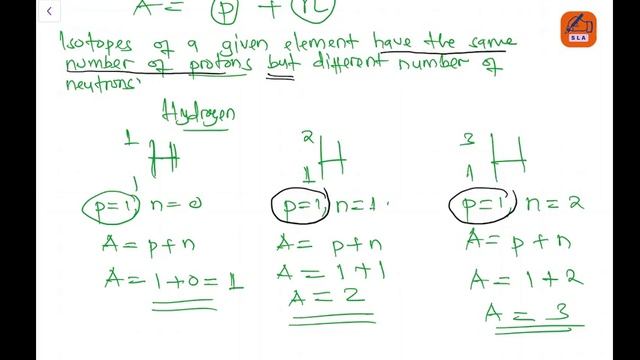 A = p + n
Isotopes of a given element have the same
number of protons but different number of
neutrons.
Hydrogen
1 1 H
2 1 H
3 1 H
p=1, n=0
p=1, n=1.
p=1, n=2
A = p+n
A = p+n
A = p+n
A = 1+0 = 1
A = 1+1
A = 1+2
A = 2
A = 3
SLA